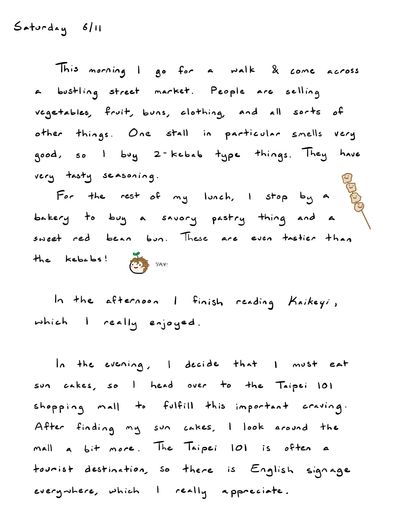 Saturday 6/11
This morning I go for a walk & come across
a bustling street market. People are selling
vegetables, fruit, buns, clothing, and all sorts of
other things. One stall in particular smells very
good, so I buy 2-kebab type things. They have
very tasty seasoning.
For the rest of my lunch, I stop by a
bakery to buy a savory pastry thing and a
sweet red bean bun. These are even tastier than
the kebabs!
YAY!
In the afternoon I finish reading Kaikeyi,
which I really enjoyed.
In the evening, I decide that I must eat
sun cakes, so I head over to the Taipei 101
shopping mall to fulfill this important craving.
After finding my sun cakes, I look around the
mall a bit more. The Taipei 101 is often a
tourist destination, so there is English signage
everywhere, which I really appreciate.